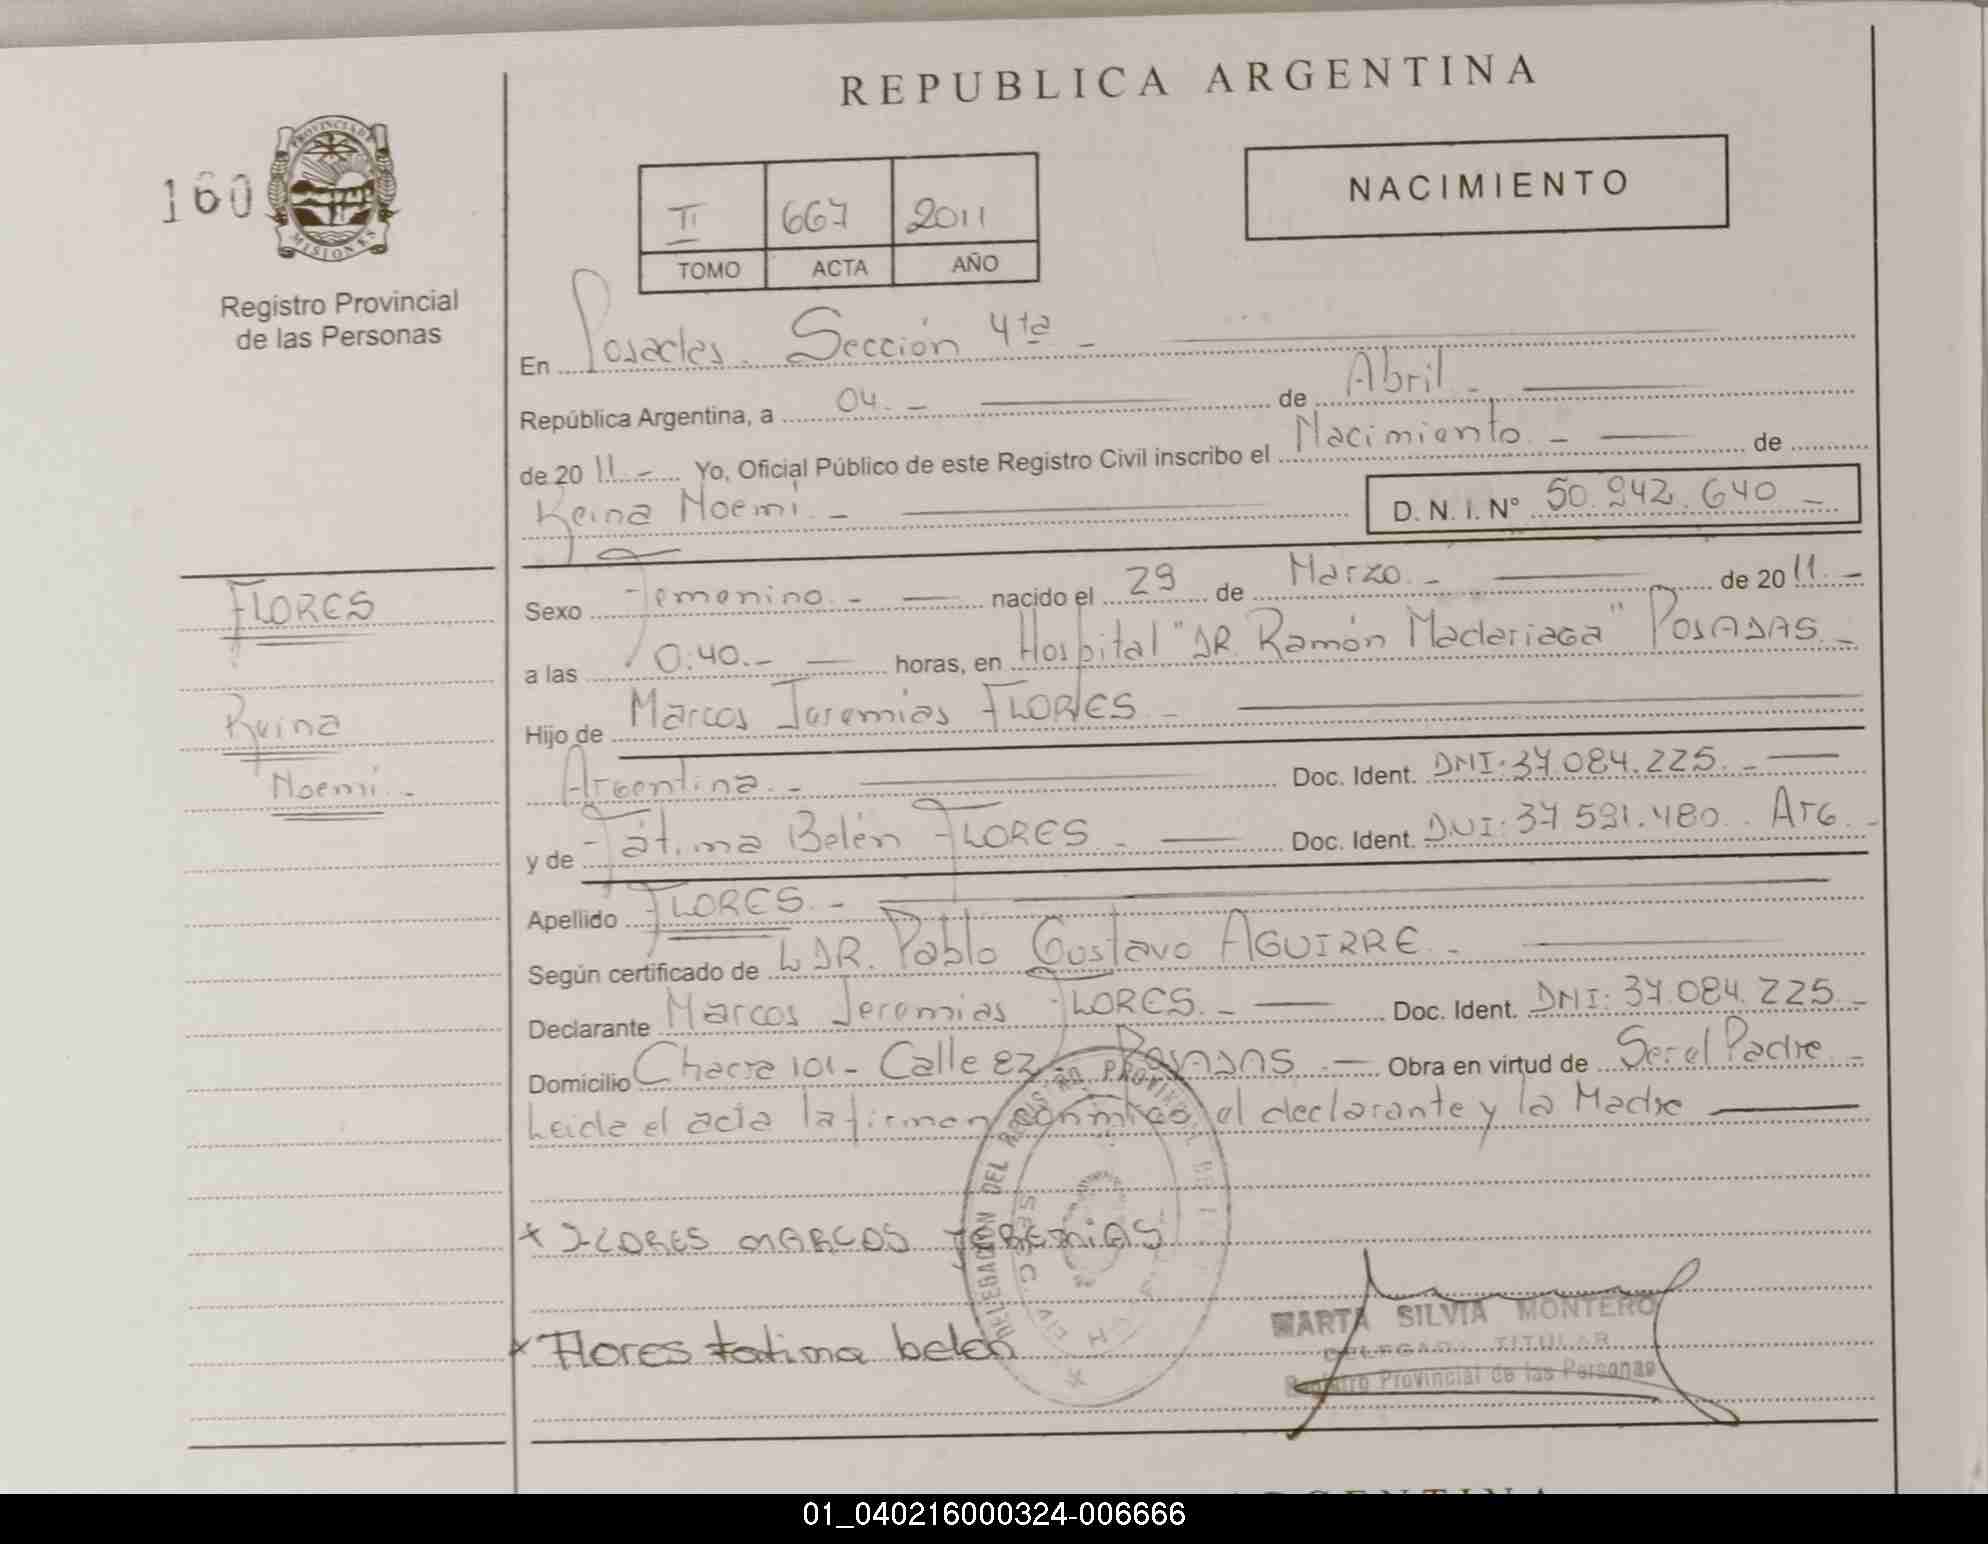 REPUBLICA ARGENTINA
160
PROVINCIA DE
MISIONES
Registro Provincial
de las Personas
II 667 2011
TOMO ACTA AÑO
NACIMIENTO
En Posadas. Sección 4ta -
República Argentina, a 04. - de Abril. -
de 2011. - Yo, Oficial Público de este Registro Civil inscribo el Nacimiento. - de
Reina Noemi. - D. N. I. Nº 50.942.640 -
FLORES
Reina
Noemi. -
Sexo Femenino. - nacido el 29 de Marzo. - de 2011. -
a las 0.40. - horas, en Hospital "DR. Ramón Madariaga" POSADAS. -
Hijo de Marcos Jeremias FLORES -
Argentina. - Doc. Ident. DNI: 37.084.225. -
y de Fátima Belén FLORES. - Doc. Ident. DNI: 37.591.480. ArG. -
Apellido FLORES. -
Según certificado de DR. Pablo Gustavo AGUIRRE. -
Declarante Marcos Jeremias FLORES. - Doc. Ident. DNI: 37.084.225. -
Domicilio Chacra 101 - Calle 82 POSADAS - Obra en virtud de Ser el Padre -
Leida el acta la firman conmigo el declarante y la Madre
x FLORES MARCOS JEREMIAS
x Flores fatima belen
DELEGACION DEL REGISTRO PROVINCIAL DE
SECC.
MARTA SILVIA MONTERO
DELEGADA TITULAR
Registro Provincial de las Personas
ARGENTINA
01_040216000324-006666